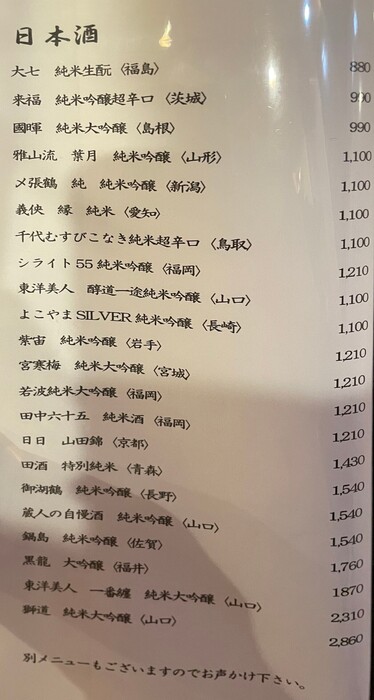 日本酒
大七 純米生酛〈福島〉 880
来福 純米吟醸超辛口〈茨城〉
國暉 純米大吟醸〈島根〉 990
雅山流 葉月 純米吟醸〈山形〉 1,100
〆張鶴 純 純米吟醸〈新潟〉 1,100
義侠 縁 純米〈愛知〉 1,100
千代むすびこなき純米超辛口〈鳥取〉 1,100
シライト55純米吟醸〈福岡〉 1,210
東洋美人 醇道一途純米吟醸〈山口〉 1,100
よこやまSILVER純米吟醸〈長崎〉 1,100
紫宙 純米吟醸〈岩手〉 1,210
宮寒梅 純米大吟醸〈宮城〉 1,210
若波純米大吟醸〈福岡〉 1,210
田中六十五 純米酒〈福岡〉 1,210
日日 山田錦〈京都〉 1,430
田酒 特別純米〈青森〉 1,540
御湖鶴 純米吟醸〈長野〉 1,540
蔵人の自慢酒 純米吟醸〈山口〉 1,540
鍋島 純米吟醸〈佐賀〉 1,760
黒龍 大吟醸〈福井〉 1870
東洋美人 一番纏 純米大吟醸〈山口〉 2,310
獅道 純米大吟醸〈山口〉 2,860
別メニューもございますのでお声かけ下さい。